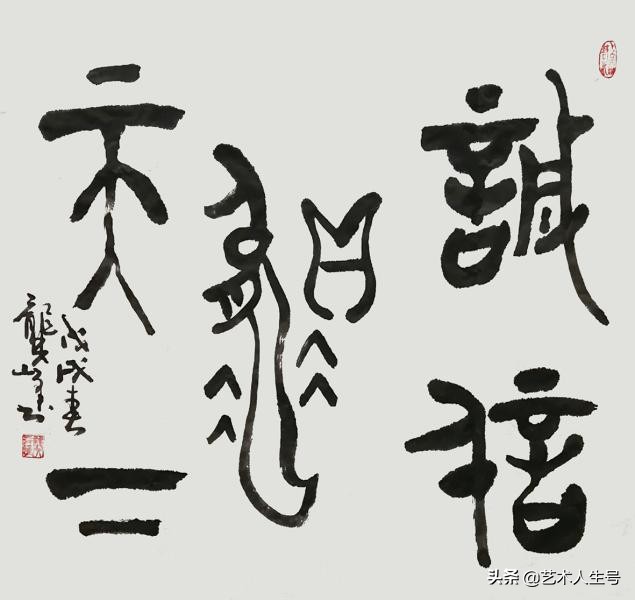 誠信
贏
天下
戊戌春
龔峰书
头条 @艺术人生号